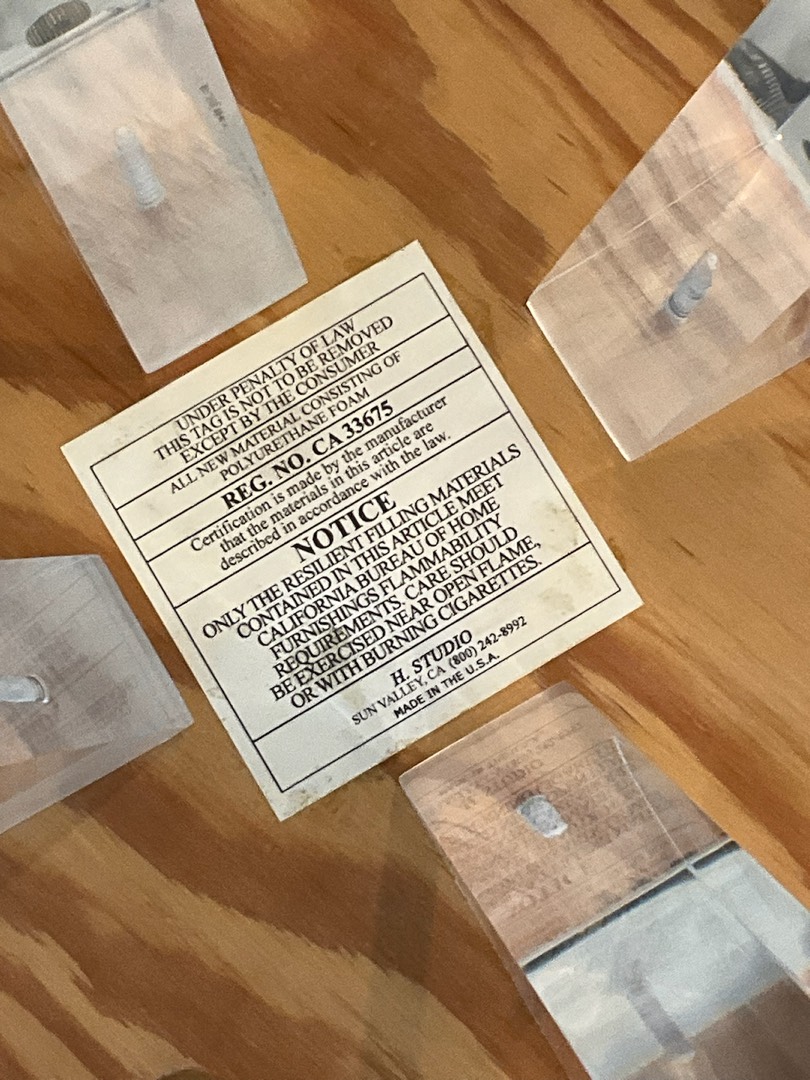 UNDER PENALTY OF LAW
THIS TAG IS NOT TO BE REMOVED
EXCEPT BY THE CONSUMER
ALL NEW MATERIAL CONSISTING OF
POLYURETHANE FOAM
REG. NO. CA 33675
Certification is made by the manufacturer
that the materials in this article are
described in accordance with the law.
NOTICE
ONLY THE RESILIENT FILLING MATERIALS
CONTAINED IN THIS ARTICLE MEET
CALIFORNIA BUREAU OF HOME
FURNISHINGS FLAMMABILITY
REQUIREMENTS. CARE SHOULD
BE EXERCISED NEAR OPEN FLAME,
OR WITH BURNING CIGARETTES.
H. STUDIO
SUN VALLEY, CA (800) 242-8992
MADE IN THE U.S.A.